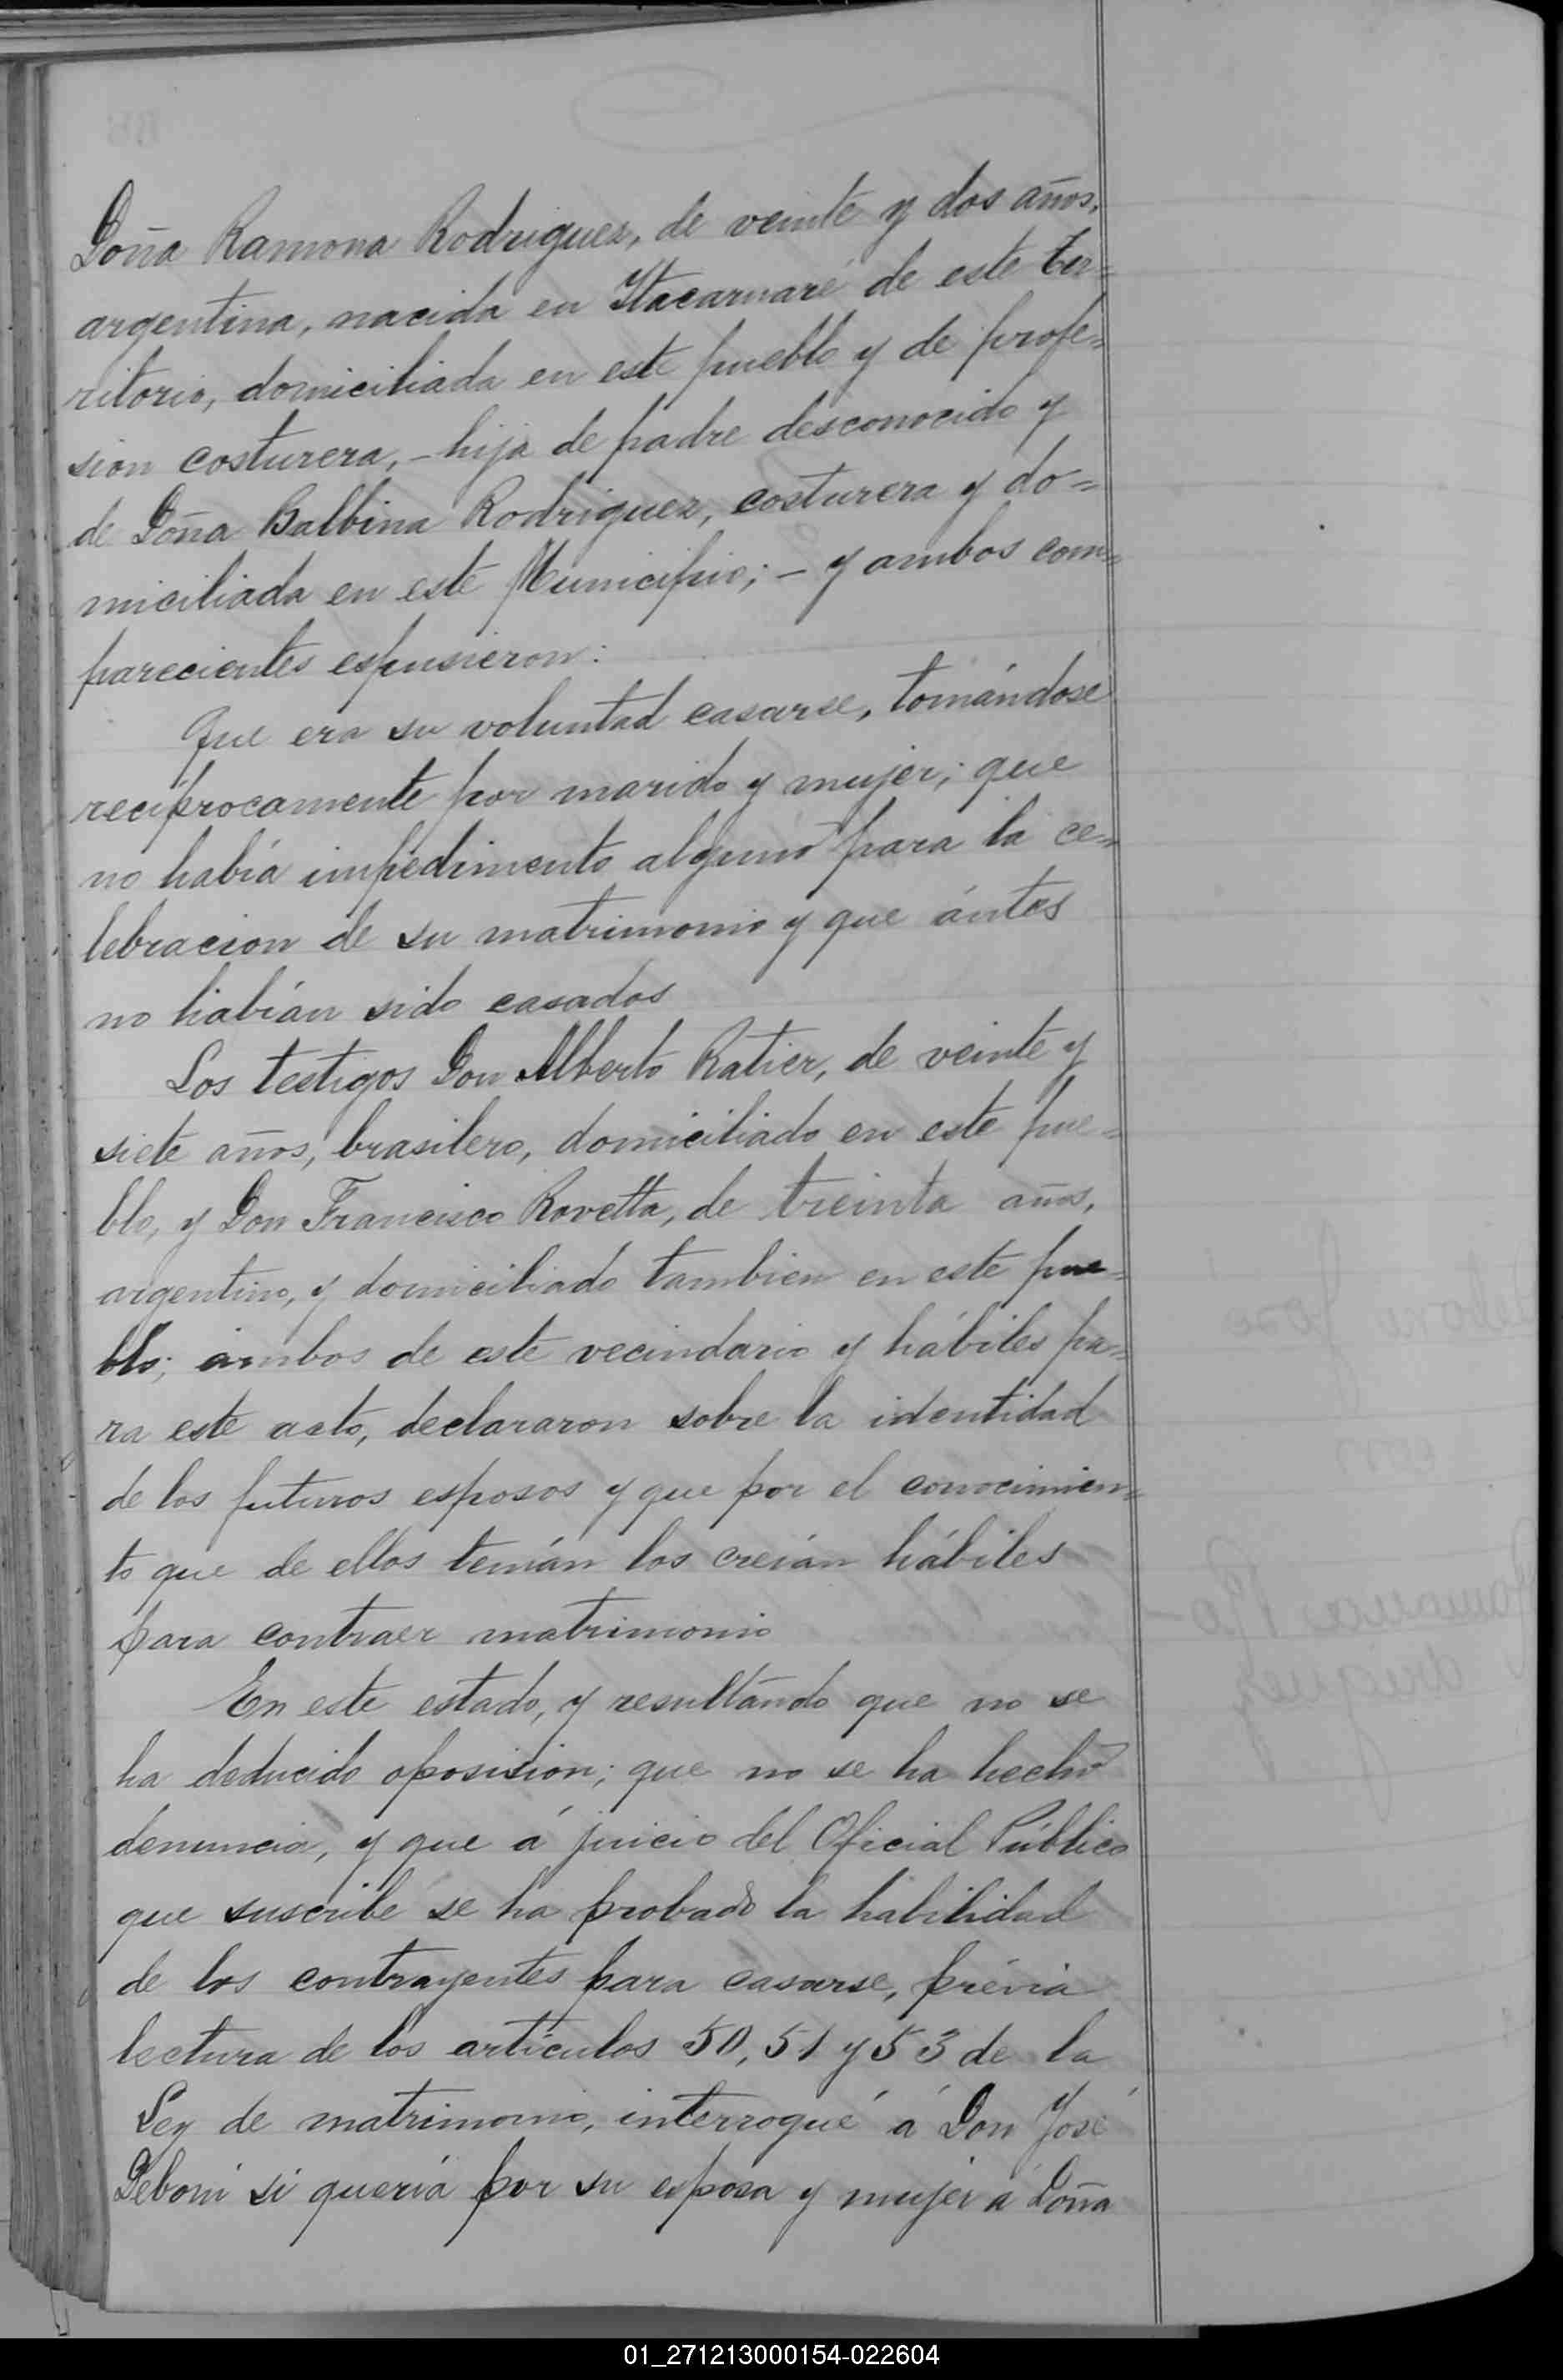 Doña Ramona Rodriguez, de veinte y dos años,
argentina, nacida en Itacaruaré de este ter=
ritorio, domiciliada en este pueblo y de profe=
sion costurera, - hija de padre desconocido y
de Doña Balbina Rodriguez, costurera y do=
miciliada en este Municipio; - y ambos com=
parecientes espusieron:
Que era su voluntad casarse, tomándose
reciprocamente por marido y mujer; que
no había impedimento alguno para la ce=
lebracion de su matrimonio y que ántes
no habían sido casados
Los testigos Don Alberto Ratier, de veinte y
siete años, brasilero, domiciliado en este pue=
blo, y Don Francisco Rovetta, de treinta años,
argentino, y domiciliado tambien en este pue=
blo; ambos de este vecindario y hábiles pa=
ra este acto, declararon sobre la identidad
de los futuros esposos y que por el conocimien=
to que de ellos tenían los creían hábiles
para contraer matrimonio
En este estado, y resultándo que no se
ha deducido oposision; que no se ha hecho
denuncia, y que á juicio del Oficial Público
que suscribe se ha probado la habilidad
de los contrayentes para casarse, prévia
lectura de los artículos 50, 51 y 53 de la
Ley de matrimonio, interrogué á Don José
Deboni si quería por su esposa y mujer á Doña
01_271213000154-022604